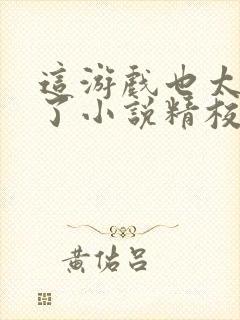 這游戲也太
了小說精校
黃佑呂